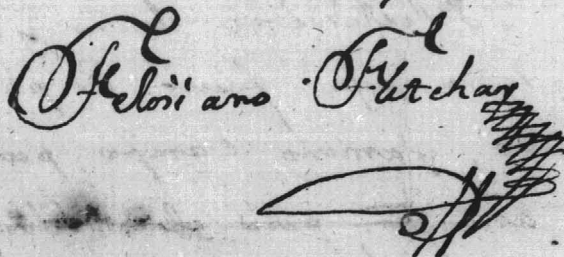 Feloriano Futchay